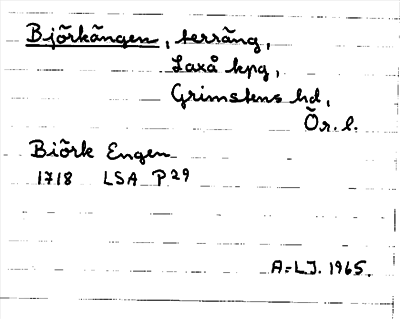 Björkängen, terräng,
Laxå kpg,
Grimstens hd,
Ör. l.
Biörk Engen
1718 LSA P 29
A=LJ. 1965.